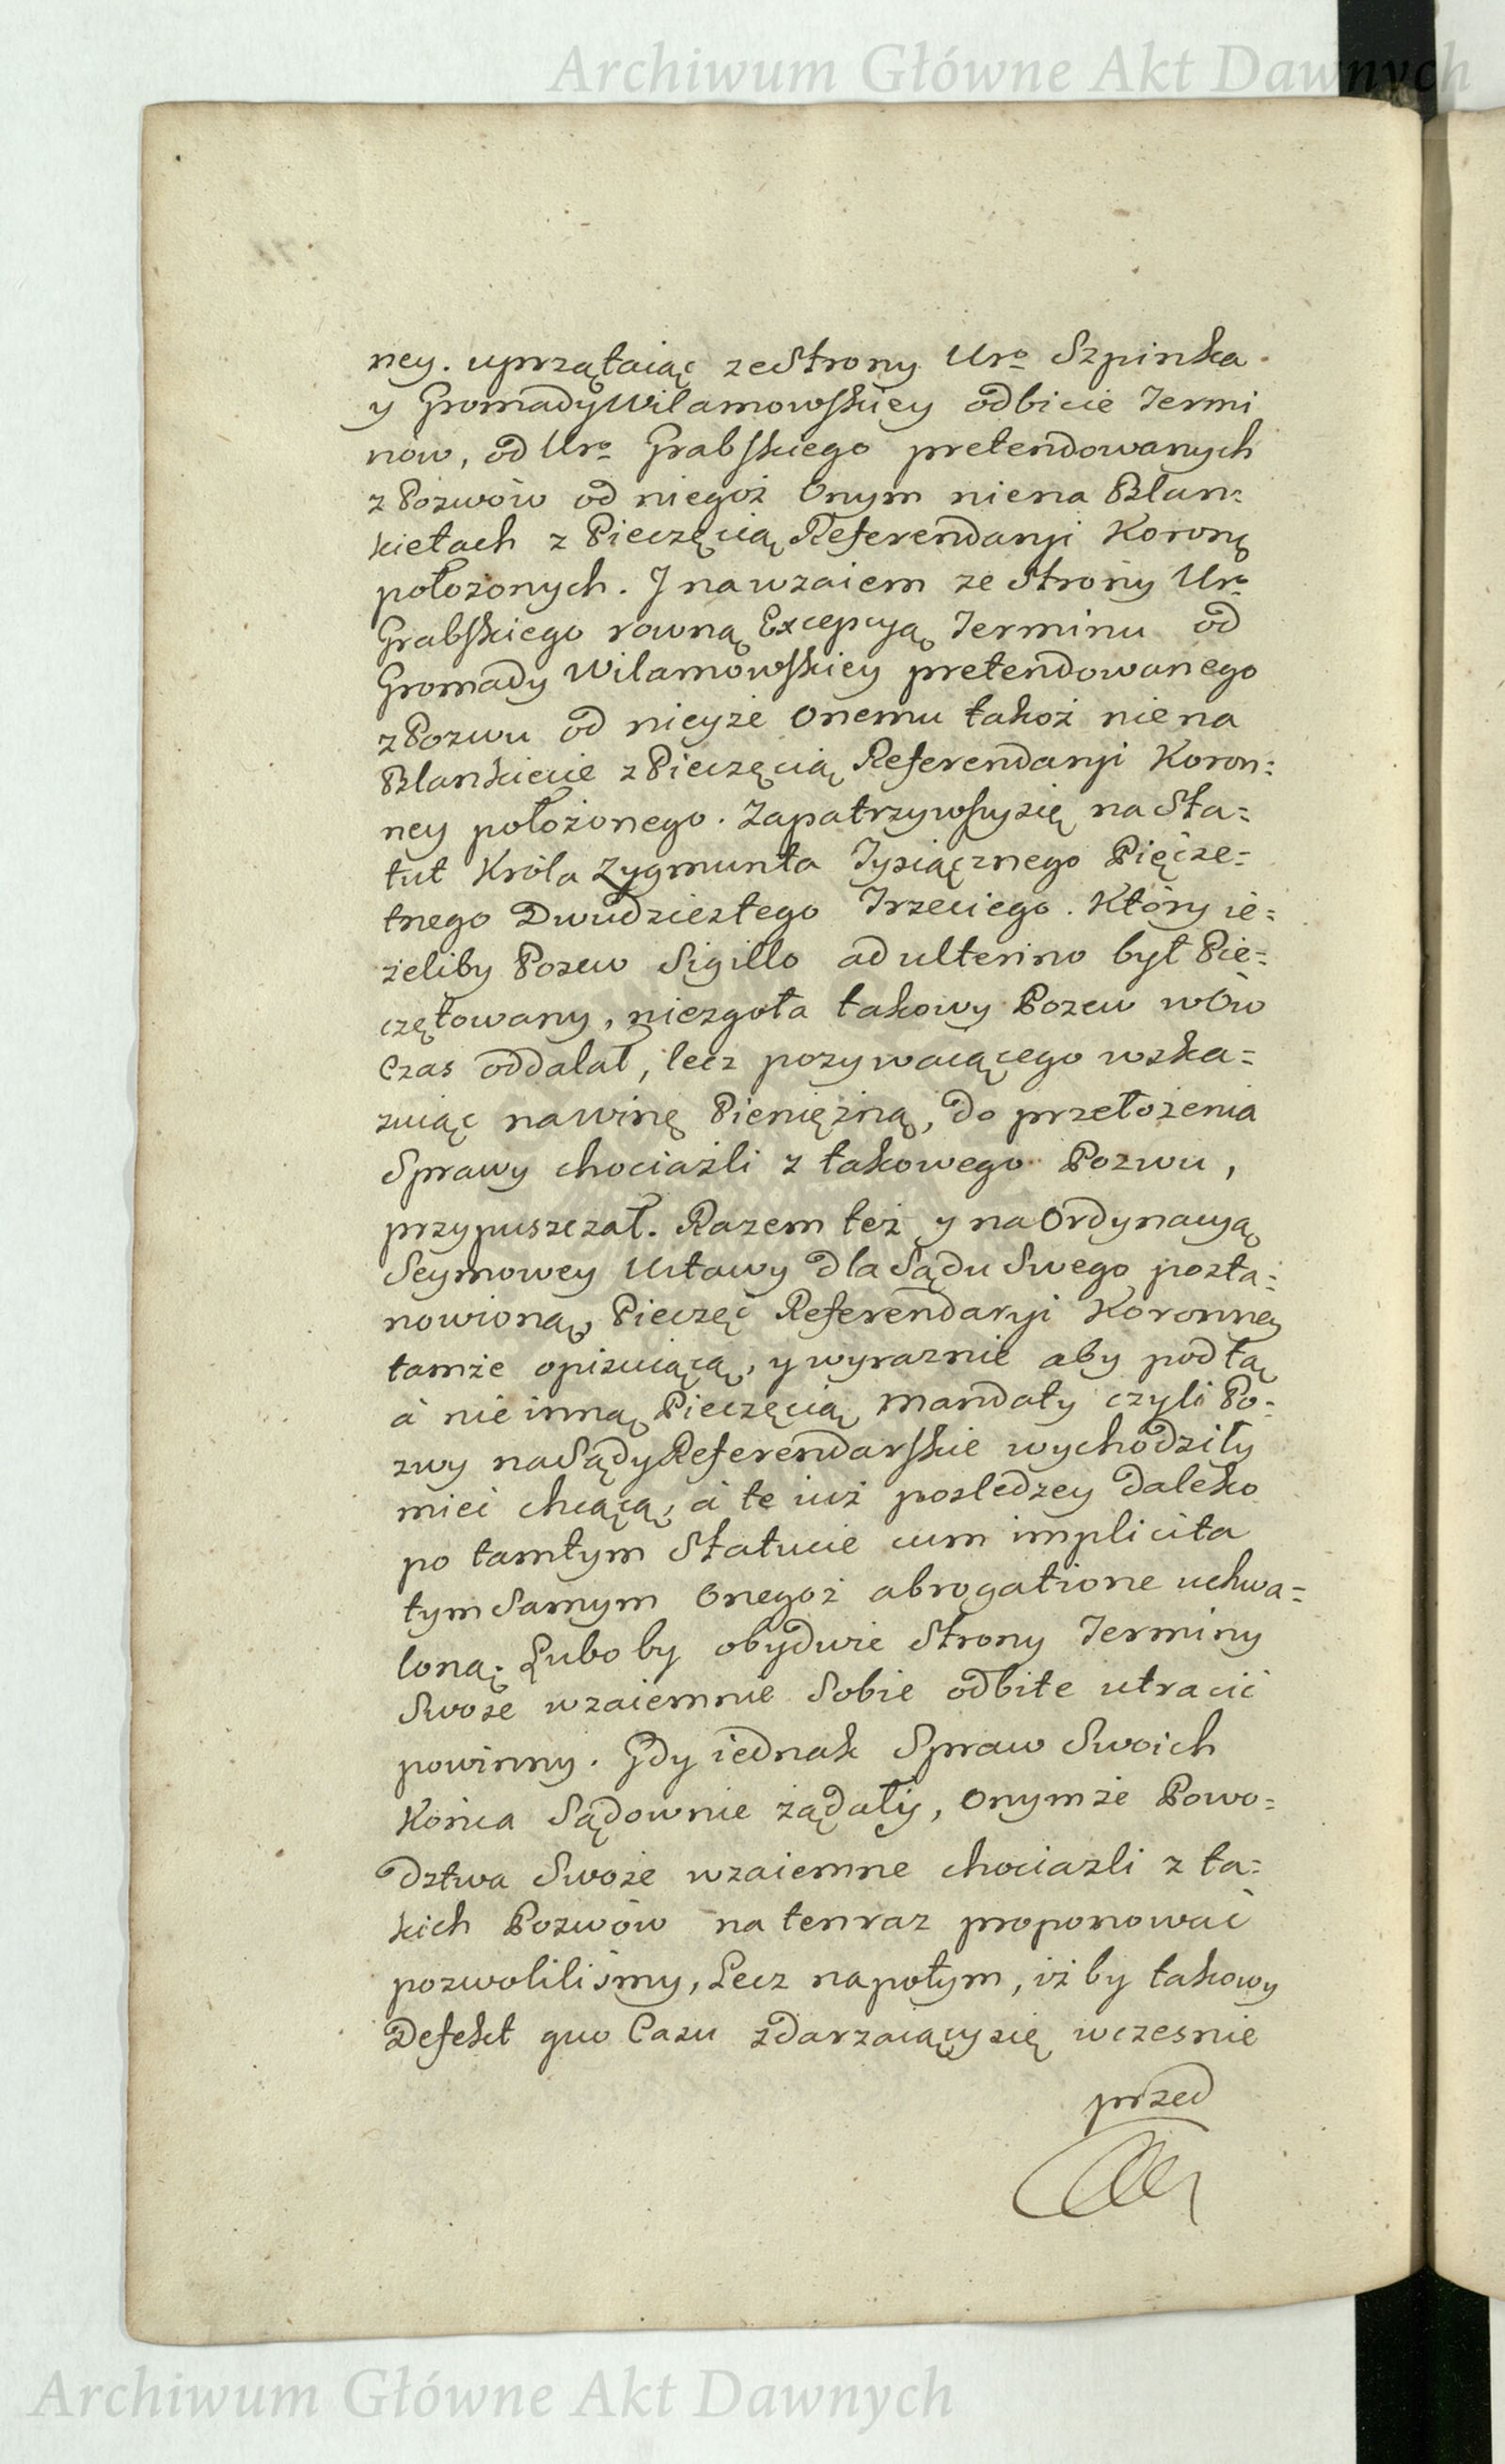 Archiwum Główne Akt Dawnych
ney. uprzątaiąc ze Strony Uro Szpinka
y Gromady Wilamowskiey odbicie Termi
now, od Uro Grabskiego pretendowanych
z Pozwów od niegoż Onym nie na Blan=
kietach z Pieczęcią Referendaryi Koronę
położonych. J nawzaiem ze Strony Uro
Grabskiego rowną Excepcyą Terminu od
Gromady Wilamowskiey pretendowanego
z Pozwu od nieyże Onemu takoż nie na
Blankiecie z Pieczęcią Referendaryi Koron=
ney położonego. Zapatrzywszy się na Sta=
tut Króla Zygmunta Tysiącznego Pięćse=
tnego Dwudziestego Trzeciego. Który ie=
żeliby Pozew Sigillo adulterino był Pie=
czętowany, niezgoła takowy Pozew wów
Czas oddalał, lecz pozywaiącego wska=
zuiąc na winę Pieniężną, do przełożenia
Sprawy chociażli z takowego Pozwu,
przypuszczał. Razem też y na Ordynacyą
Seymowey Ustawy dla Sądu Swego posta=
nowioną, Pieczęć Referendaryi Koronney
tamże opisuiącą, y wyraznie aby pod tą
à nie inną Pieczęcią Mandaty czyli Po=
zwy na Sądy Referendarskie wychodziły
mieć chcącą, à te iuż posledzey daleko
po tamtym Statucie cum implicita
tym Samym Onegoż abrogatione uchwa=
loną; Lubo by obydwie Strony Terminy
Swoie wzaiemnie Sobie odbite utracić
powinny. Gdy iednak Spraw Swoich
Końca Sądownie żądały, Onymże Powo=
dztwa Swoie wzaiemne chociażli z ta=
kich Pozwów na tenraz proponować
pozwoliliśmy, Lecz napotym, iżby takowy
Defekt quo Casu zdarzaiący się wczesnie
przed
Archiwum Główne Akt Dawnych